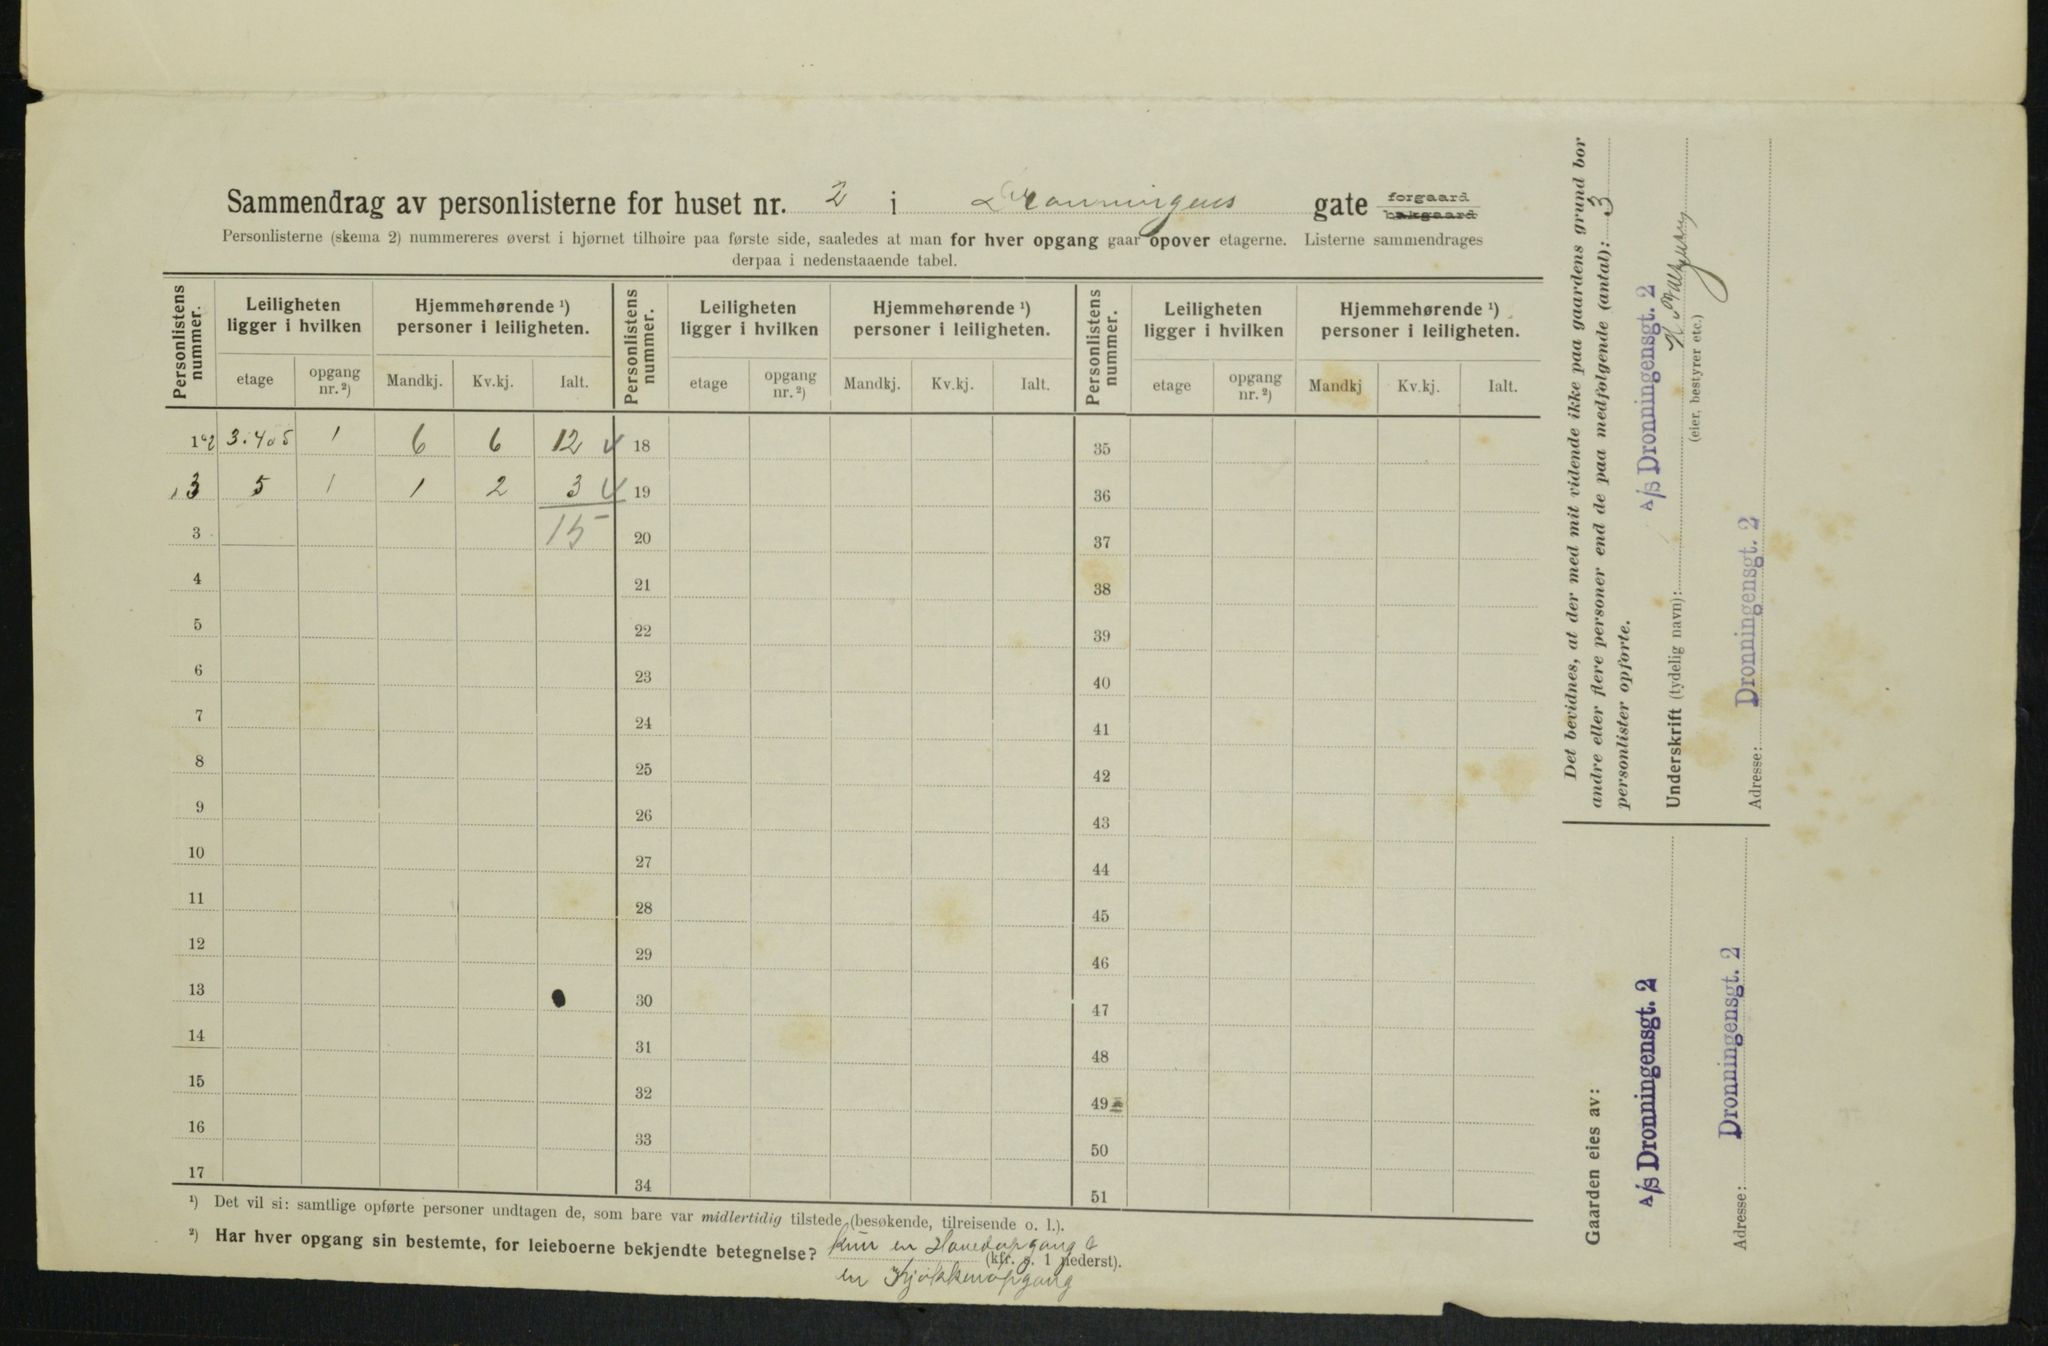 Sammendrag av personlisterne for huset nr. 2 i Dronningens gate forgaard bakgaard
Personlisterne (skema 2) nummereres øverst i hjørnet tilhøire paa første side, saaledes at man for hver opgang gaar opover etagerne. Listerne sammendrages
derpaa i nedenstaaende tabel.
Personlistens nummer. Leiligheten ligger i hvilken Hjemmehørende ¹) personer i leiligheten. Personlistens nummer. Leiligheten ligger i hvilken Hjemmehørende ¹) personer i leiligheten. Personlistens nummer. Leiligheten ligger i hvilken Hjemmehørende ¹) personer i leiligheten.
etage opgang nr. ²) Mandkj. Kv.kj. Ialt. etage opgang nr. ²) Mandkj. Kv.kj. Ialt. etage opgang nr. ²) Mandkj Kv.kj. Ialt.
1 2 3. 4 5 1 6 6 12 18 35
3 5 1 1 2 3 19 36
3 15 20 37
4 21 38
5 22 39
6 23 40
7 24 41
8 25 42
9 26 43
10 27 44
11 28 45
12 29 46
13 30 47
14 31 48
15 32 49
16 33 50
17 34 51
¹) Det vil si: samtlige opførte personer undtagen de, som bare var midlertidig tilstede (besøkende, tilreisende o. l.).
²) Har hver opgang sin bestemte, for leieboerne bekjendte betegnelse? Kun en Hovedopgang &
(kfr. s. 1 nederst).
en Kjøkkenopgang
Det bevidnes, at der med mit vidende ikke paa gaardens grund bor
andre eller flere personer end de paa medfølgende (antal): 3
personlister opførte.
A/S Dronningensgt. 2
Underskrift (tydelig navn): H.
(eier, bestyrer etc.)
Adresse: Dronningensgt. 2
Gaarden eies av:
A/S Dronningensgt. 2
Adresse: Dronningensgt. 2